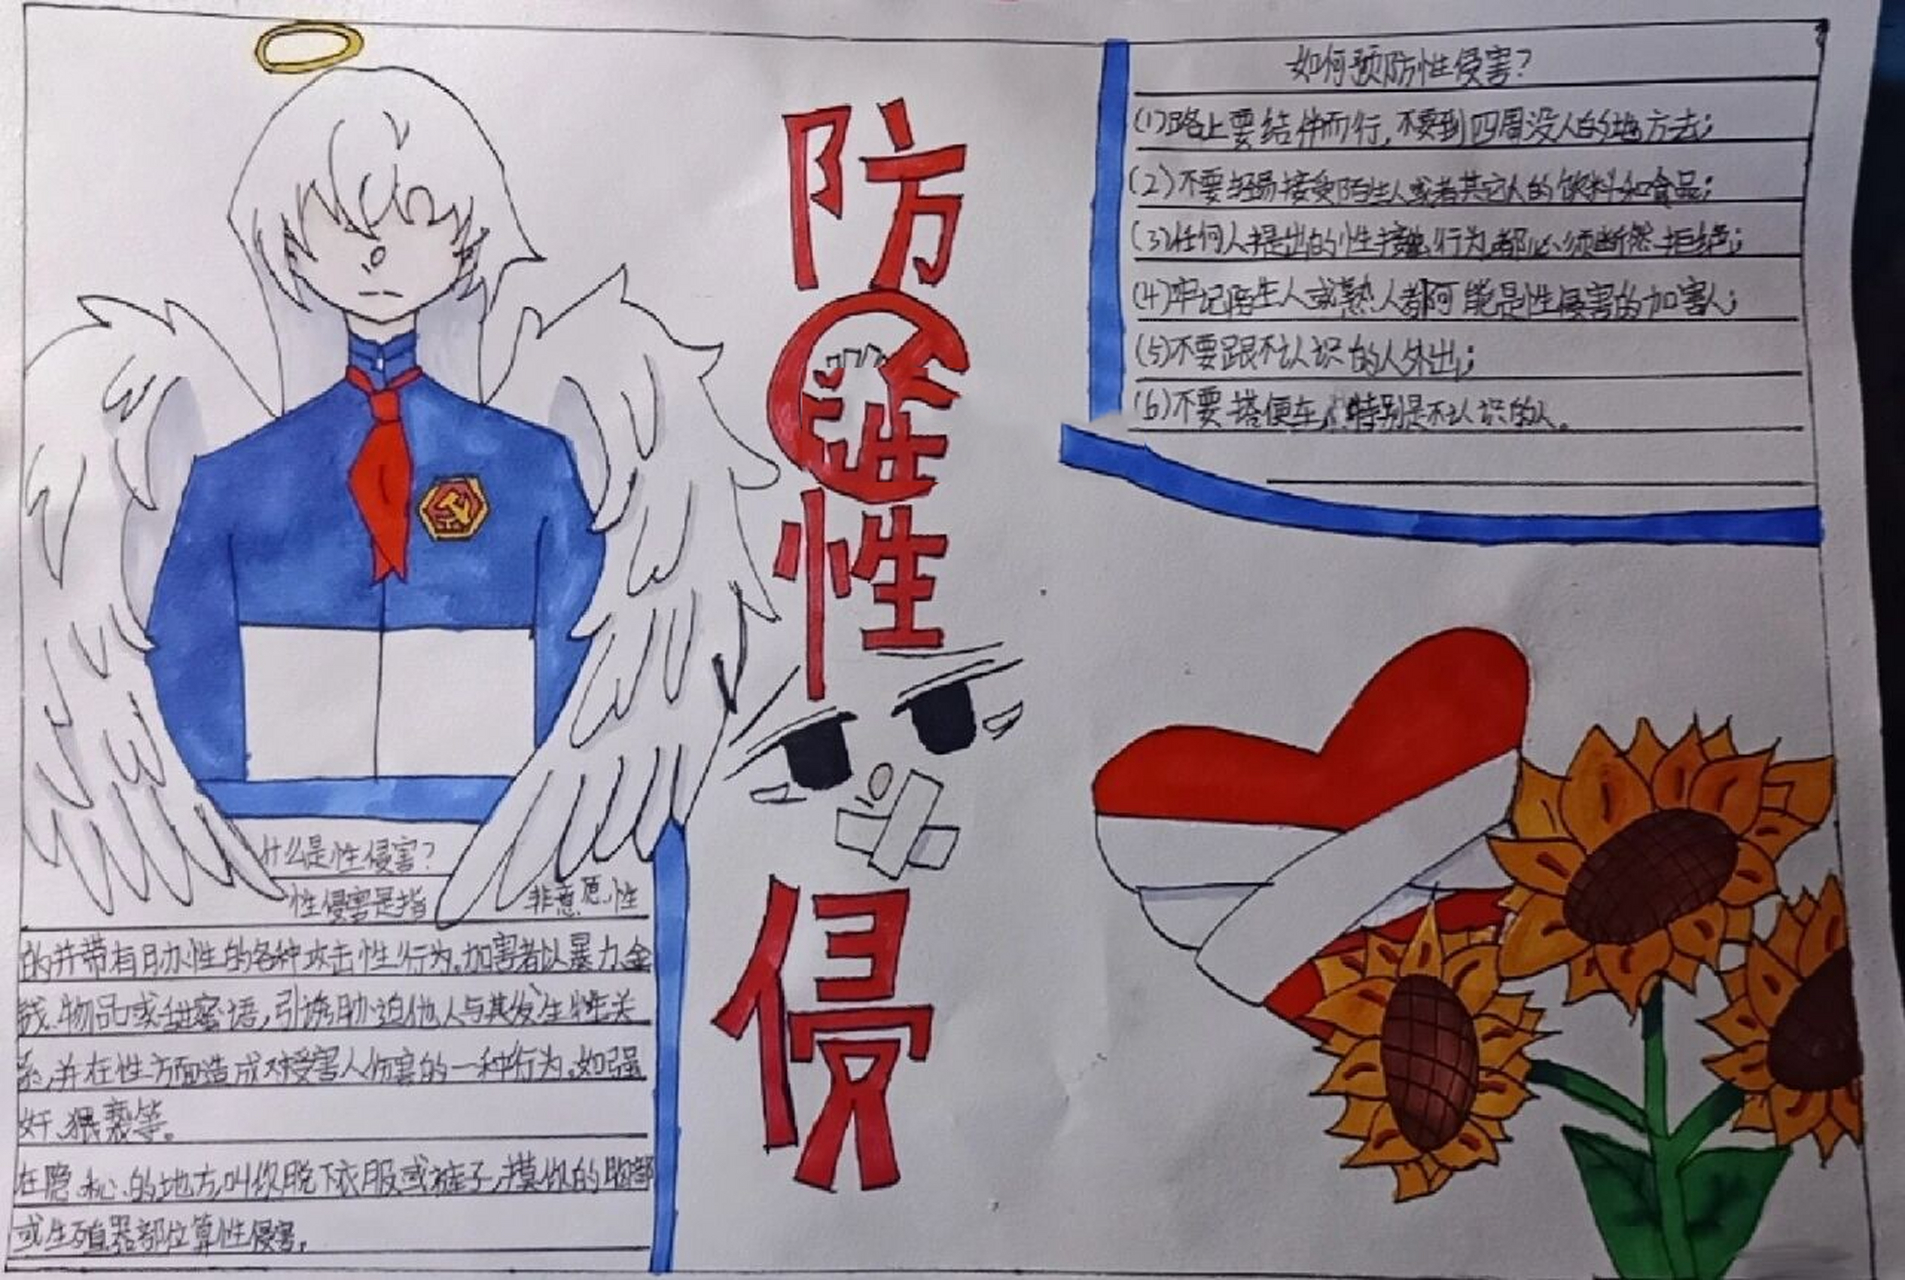 防性侵
如何预防性侵害?
(1)路上要结伴而行,不要到四周没人的地方去;
(2)不要轻易接受陌生人或者其它人的饮料和食品;
(3)任何人提出的性接触行为,都必须断然拒绝;
(4)牢记陌生人或熟人都可能是性侵害的加害人;
(5)不要跟不认识的人外出;
(6)不要搭便车,特别是不认识的人。
什么是性侵害?
性侵害是指 非意愿性
的并带有胁性的各种攻击性行为。加害者以暴力、金
钱、物品或甜蜜语,引诱胁迫他人与其发生性关
系,并在性方面造成对受害人伤害的一种行为。如强
奸、猥亵等。
在隐私的地方,叫你脱下衣服或裤子,摸你的胸部
或生殖器部位算性侵害。